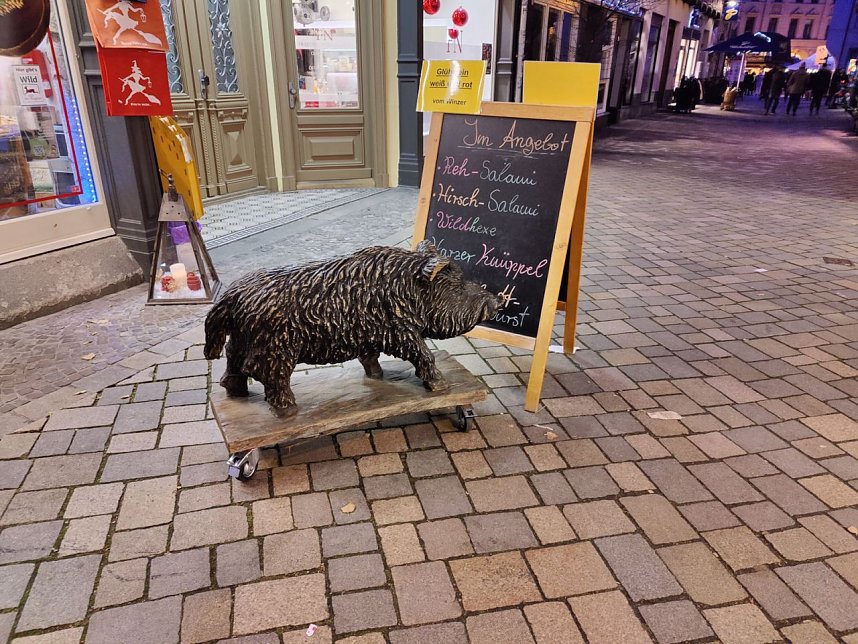 Glühwein
weiß und rot
vom Winzer
Im Angebot
Reh-Salami
Hirsch-Salami
Wildhexe
Harzer Knüppel
wurst
Hier gibt's
Wild